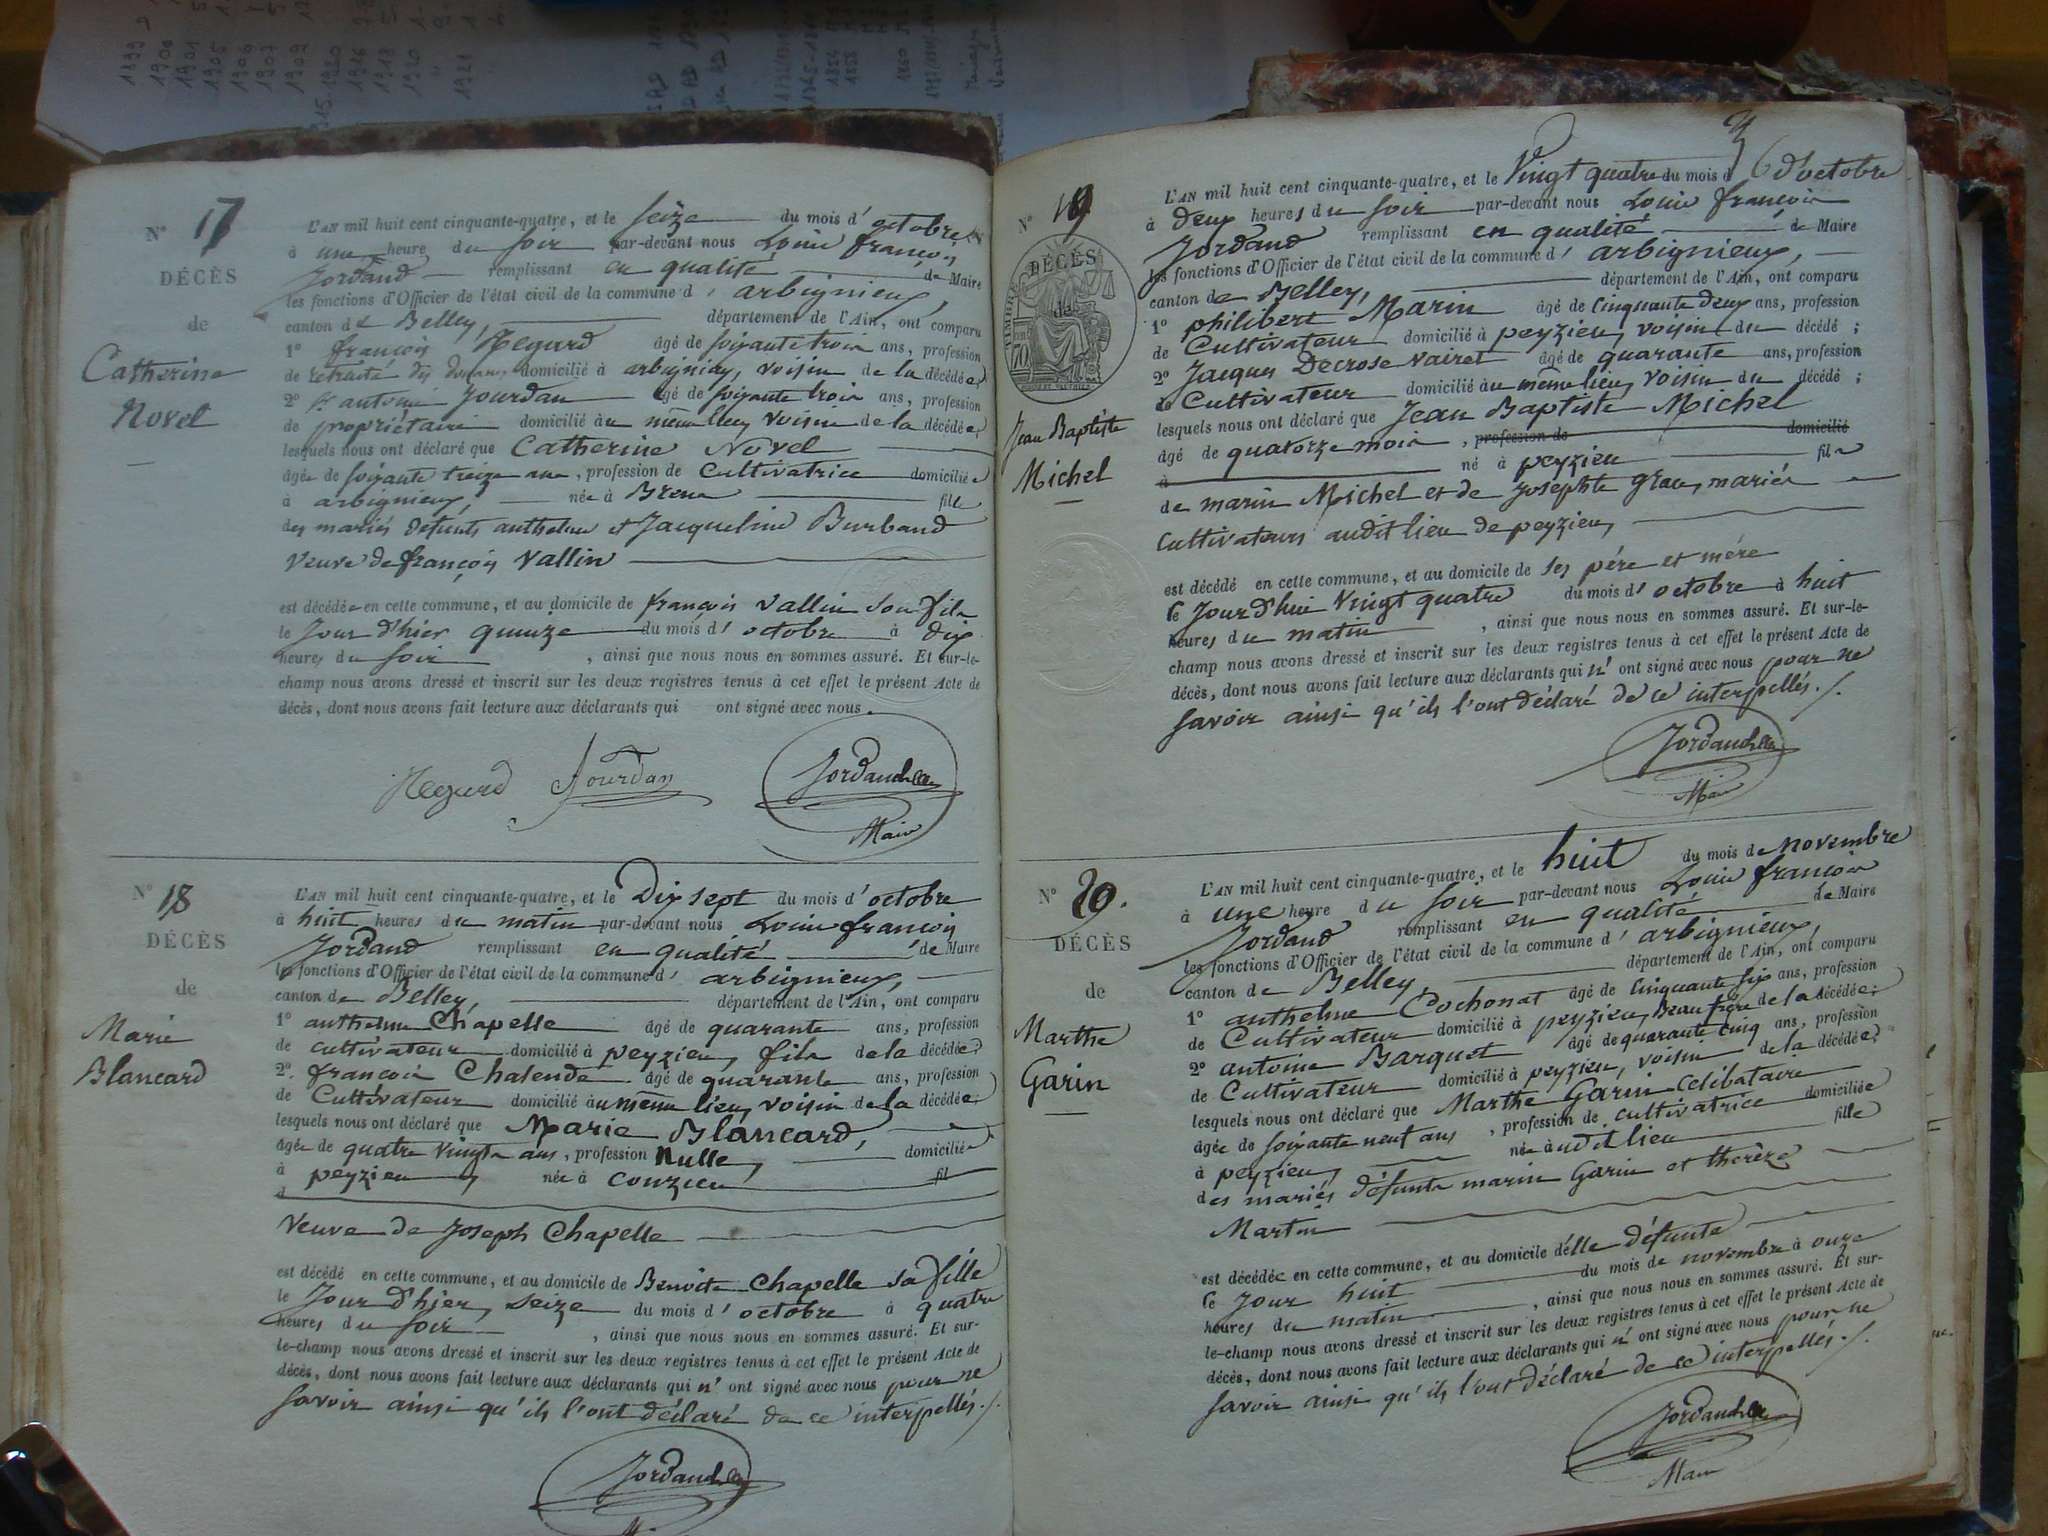 N° 17
DÉCÈS
de
Catherine
Novel
L'AN mil huit cent cinquante-quatre, et le seize du mois d'octobre
à une heure du soir par-devant nous Louis françois
Jordand remplissant en qualité de Maire
les fonctions d'Officier de l'état civil de la commune d'arbignieux,
canton de Belley, département de l'Ain, ont comparu
1° françois Hegard âgé de soixante trois ans, profession
de retraité des douanes domicilié à arbignieu, voisin de la décédée,
2° antoine Jourdan âgé de soixante trois ans, profession
de propriétaire domicilié au même lieu, voisin de la décédée,
lesquels nous ont déclaré que Catherine Novel
âgée de soixante treize ans, profession de Cultivatrice domiciliée
à arbignieux, née à Brens fille
des mariés défunts anthelme et Jacqueline Burband
Veuve de françois Vallin
est décédée en cette commune, et au domicile de françois Vallin son fils
le Jour d'hier quinze du mois d'octobre à dix
heures du soir, ainsi que nous nous en sommes assuré. Et sur-le-
champ nous avons dressé et inscrit sur les deux registres tenus à cet effet le présent Acte de
décès, dont nous avons fait lecture aux déclarants qui ont signé avec nous.
Hegard Jourdan Jordand
Maire
N° 18
DÉCÈS
de
Marie
Blancard
L'AN mil huit cent cinquante-quatre, et le Dix sept du mois d'octobre
à huit heures du matin par-devant nous Louis françois
Jordand remplissant en qualité de Maire
les fonctions d'Officier de l'état civil de la commune d'arbignieux,
canton de Belley, département de l'Ain, ont comparu
1° anthelme Chapelle âgé de quarante ans, profession
de cultivateur domicilié à peyzieu, fils de la décédée;
2° françois Chalende âgé de quarante ans, profession
de Cultivateur domicilié au même lieu, voisin de la décédée;
lesquels nous ont déclaré que Marie Blancard,
âgée de quatre vingts ans, profession Nulle, domiciliée
à peyzieu, née à Conzieu fil
à
Veuve de Joseph Chapelle
est décédé en cette commune, et au domicile de Benoite Chapelle sa fille
le Jour d'hier, seize du mois d'octobre à quatre
heures du soir, ainsi que nous nous en sommes assuré. Et sur-
le-champ nous avons dressé et inscrit sur les deux registres tenus à cet effet le présent Acte de
décès, dont nous avons fait lecture aux déclarants qui n'ont signé avec nous pour ne
savoir ainsi qu'ils l'ont déclaré de ce interpellés./.
Jordand
N° 19
DÉCÈS
de
Jean Baptiste
Michel
L'AN mil huit cent cinquante-quatre, et le Vingt quatre du mois d'octobre
à deux heures du soir par-devant nous Louis françois
Jordand remplissant en qualité de Maire
les fonctions d'Officier de l'état civil de la commune d'arbignieux,
canton de Belley, département de l'Ain, ont comparu
1° philibert Marin âgé de Cinquante deux ans, profession
de Cultivateur domicilié à peyzieu, voisin du décédé;
2° Jacques Decrose Vairet âgé de quarante ans, profession
de Cultivateur domicilié au même lieu, voisin du décédé;
lesquels nous ont déclaré que Jean Baptiste Michel
âgé de quatorze mois, profession de domicilié
à né à peyzieu fils
de marin Michel et de Josephte Grau, mariés
cultivateurs audit lieu de peyzieu,
est décédé en cette commune, et au domicile de ses père et mère
le Jourd'hui vingt quatre du mois d'octobre à huit
heures du matin, ainsi que nous nous en sommes assuré. Et sur-le-
champ nous avons dressé et inscrit sur les deux registres tenus à cet effet le présent Acte de
décès, dont nous avons fait lecture aux déclarants qui n'ont signé avec nous pour ne
savoir ainsi qu'ils l'ont déclaré de ce interpellés./.
Jordand
Maire
N° 20.
DÉCÈS
de
Marthe
Garin
L'AN mil huit cent cinquante-quatre, et le huit du mois de novembre
à une heure du soir par-devant nous Louis françois
Jordand remplissant en qualité de Maire
les fonctions d'Officier de l'état civil de la commune d'arbignieux,
canton de Belley, département de l'Ain, ont comparu
1° anthelme Cochonat âgé de Cinquante six ans, profession
de Cultivateur domicilié à peyzieu, Beau frère de la décédée;
2° antoine Barquet âgé de quarante cinq ans, profession
de Cultivateur domicilié à peyzieu, voisin de la décédée;
lesquels nous ont déclaré que Marthe Garin Celibataire
âgée de soixante neuf ans, profession de cultivatrice domiciliée
à peyzieu, née audit lieu fille
des mariés défunts marin Garin et therèze
Martin
est décédée en cette commune, et au domicile d'elle défunte
le Jour huit du mois de novembre à onze
heures du matin, ainsi que nous nous en sommes assuré. Et sur-
le-champ nous avons dressé et inscrit sur les deux registres tenus à cet effet le présent Acte de
décès, dont nous avons fait lecture aux déclarants qui n'ont signé avec nous pour ne
savoir ainsi qu'ils l'ont déclaré de ce interpellés./.
Jordand
Maire